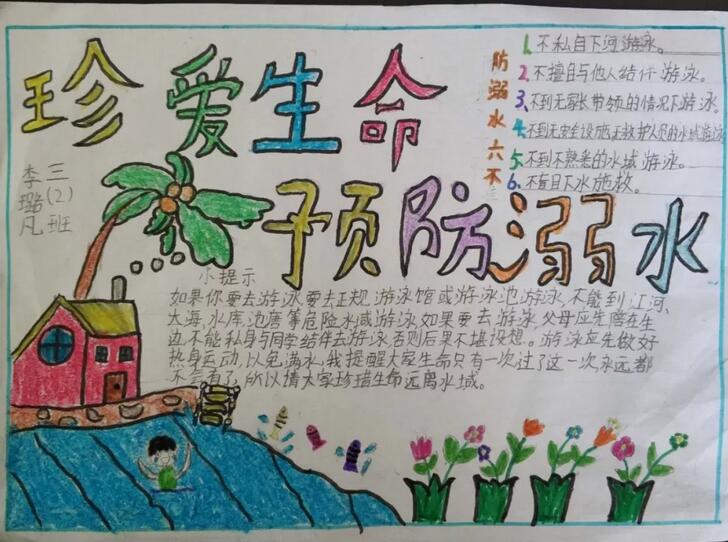 珍爱生命
预防溺水
三(2)班
李璐凡
防溺水六不
1、不私自下河游泳。
2、不擅自与他人结伴游泳。
3、不到无家长带领的情况下游泳。
4、不到无安全设施无救护人员的水域游泳
5、不到不熟悉的水域游泳。
6、不盲目下水施救。
小提示
如果你要去游泳,要去正规游泳馆或游泳池游泳,不能到江河、
大海、水库、池唐等危险水域游泳,如果要去游泳,父母应先陪在生
边,不能私身与同学结伴去游泳,否则后果不堪设想。游泳应先做好
热身运动,以免满水,我提醒大家生命只有一次,过了这一次,永远都
不会有了,所以请大家珍惜生命远离水域。